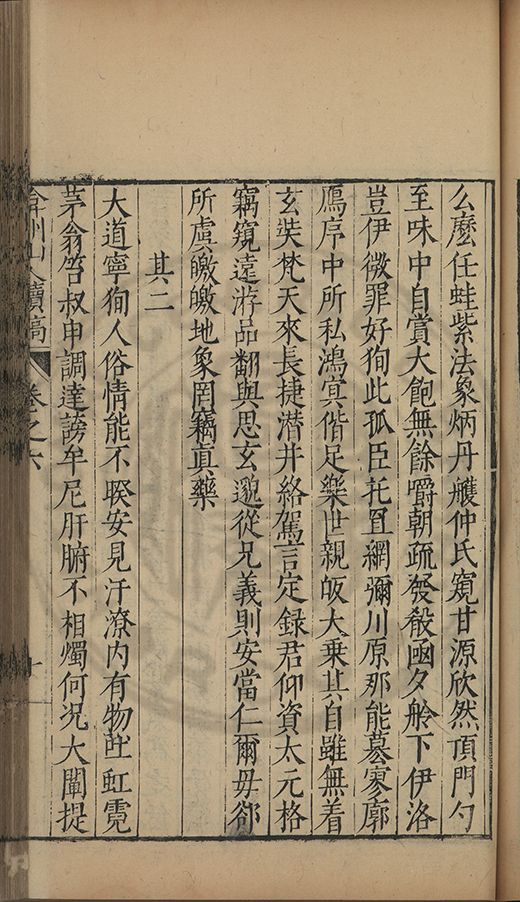 么麼任蛙紫法象炳丹雘仲氏窺甘源欣然頂門勺
至味中自賞大飽無餘嚼朝疏發殽函夕舲下伊洛
豈伊微罪好狥此孤臣托罝網彌川原那能慕寥廓
鴈序中所私鴻冥偕足樂世親皈大乗其自雖無着
玄奘梵天來長捷潜井絡駕言定録君仰資太元格
竊窺遠游品翻與思玄邈從兄義則安當仁爾毋郤
所虞皦皦地象罔竊眞藥
其二
大道寧狥人俗情能不暌安見汗潦内有物㞮虹霓
茅翁笞叔申調達謗牟尼肝腑不相燭何况大闡提
弇州山人續稿 卷之六 十